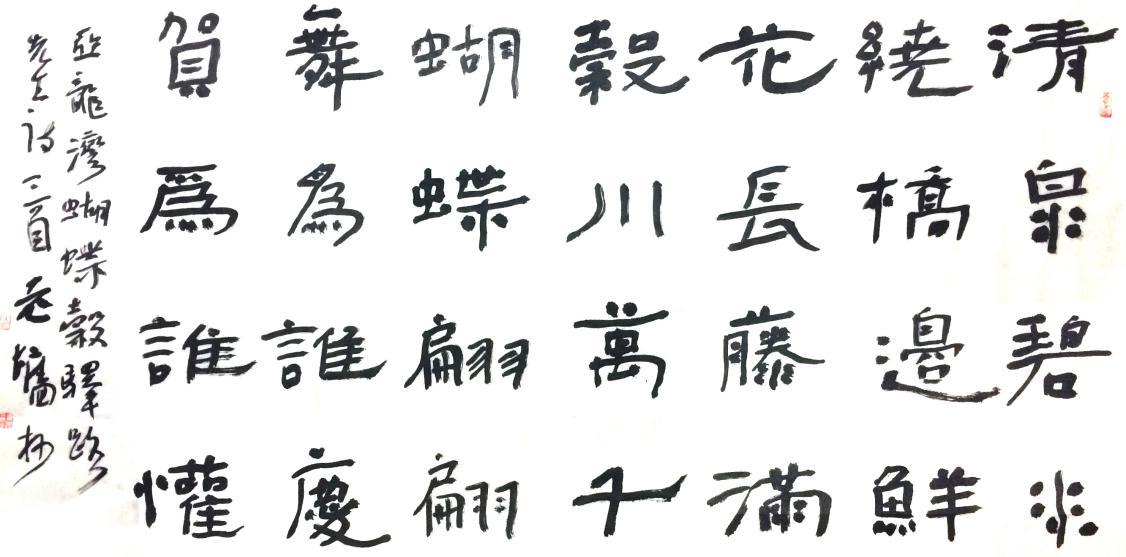 清泉碧水
繞橋邊鮮
花長藤滿
穀川萬千
蝴蝶翩翩
舞為誰慶
賀爲誰懽
亞龍灣蝴蝶穀驛路
先生詩三首老抄